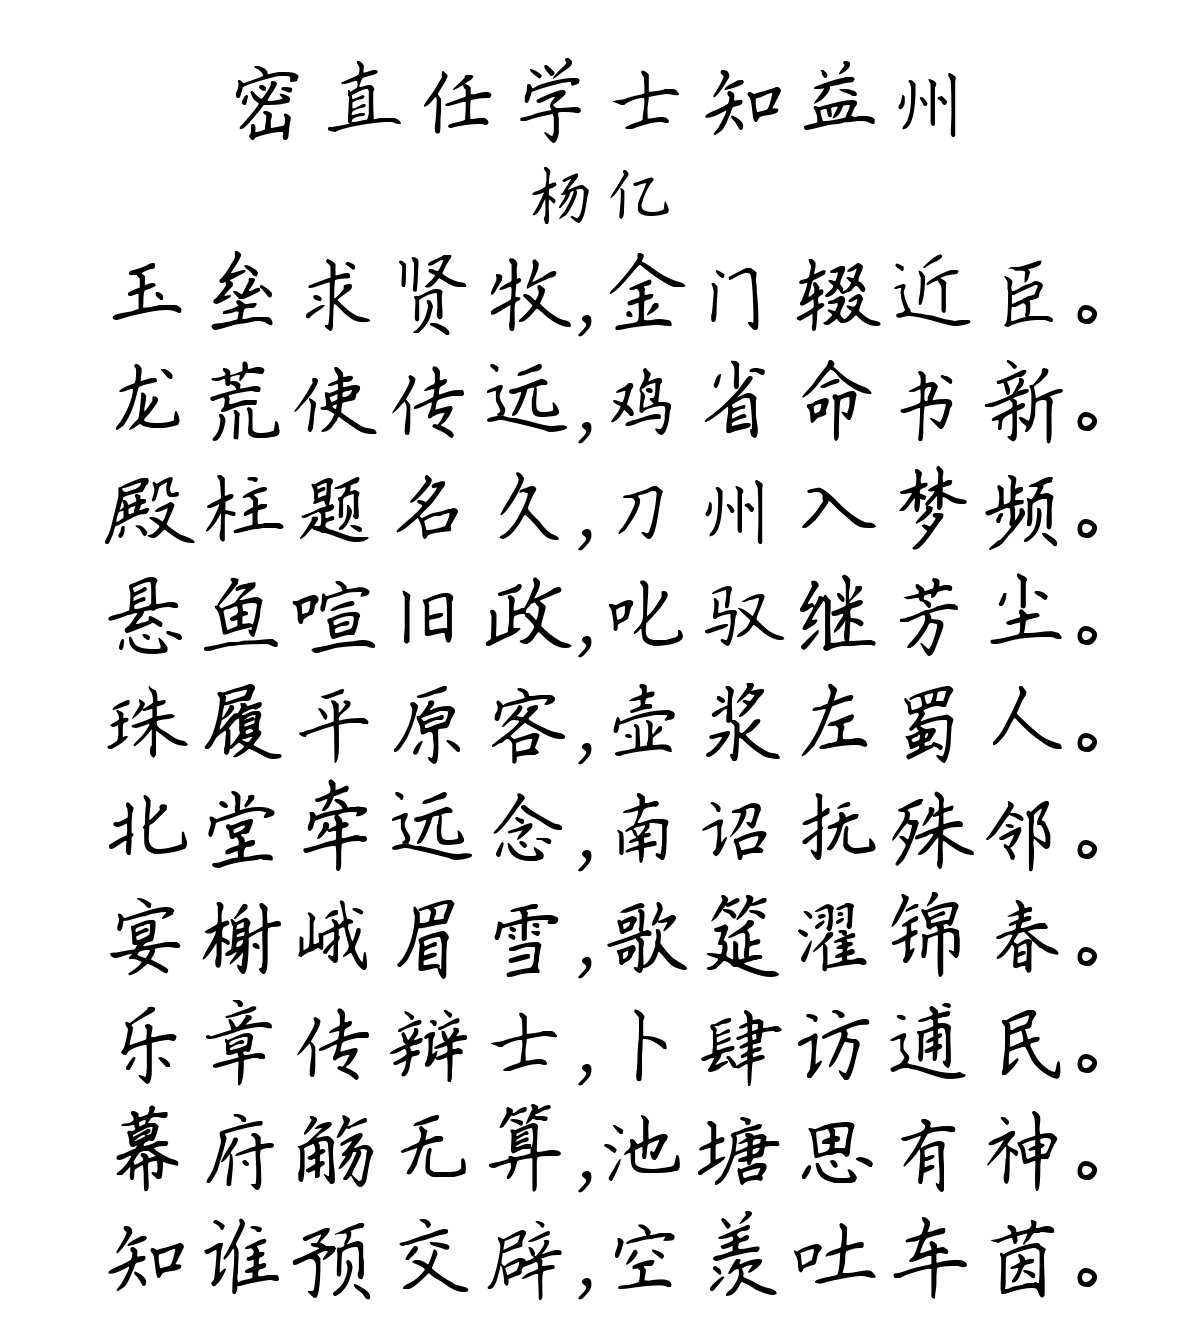 密直任学士知益州
杨亿
玉垒求贤牧,金门辍近臣。
龙荒使传远,鸡省命书新。
殿柱题名久,刀州入梦频。
悬鱼喧旧政,叱驭继芳尘。
珠履平原客,壶浆左蜀人。
北堂牵远念,南诏抚殊邻。
宴榭峨眉雪,歌筵濯锦春。
乐章传辩士,卜肆访逋民。
幕府觞无算,池塘思有神。
知谁预交辟,空羡吐车茵。